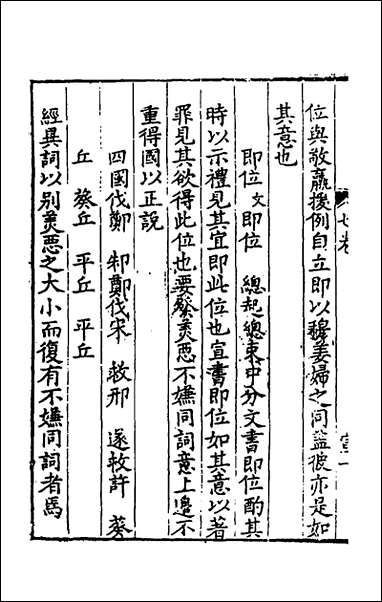 位與敬嬴援例自立即以穆姜婦之同益彼亦是如
其意也
即位 文即位 總起總束中分文書即位酌其
時以示禮見其宜即此位也宣書即位如其意以著
罪見其欲得此位也要繫美惡不嫌同詞意上邉不
重得國以正說
四國伐鄭 邾鄭伐宋 救邢 遂救許 葵
丘 葵丘 平丘 平丘
經異詞以別美惡之大小而復有不嫌同詞者焉
七卷
宣一